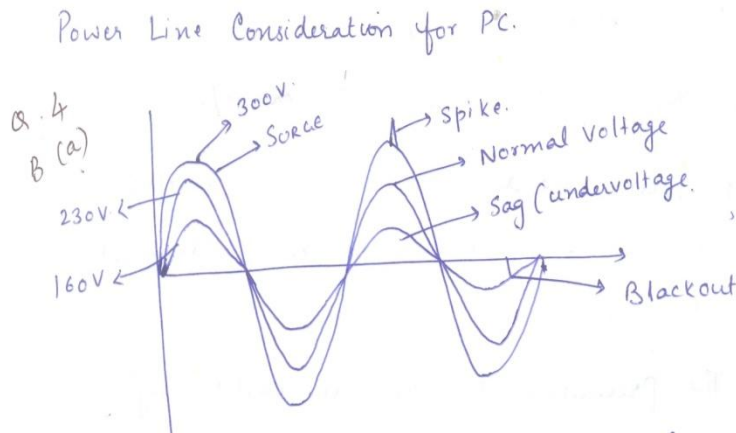 Power Line Consideration for PC.
Q.4
B (a)
300V.
SURGE
Spike.
Normal Voltage
230V
Sag (undervoltage.
160V
Blackout